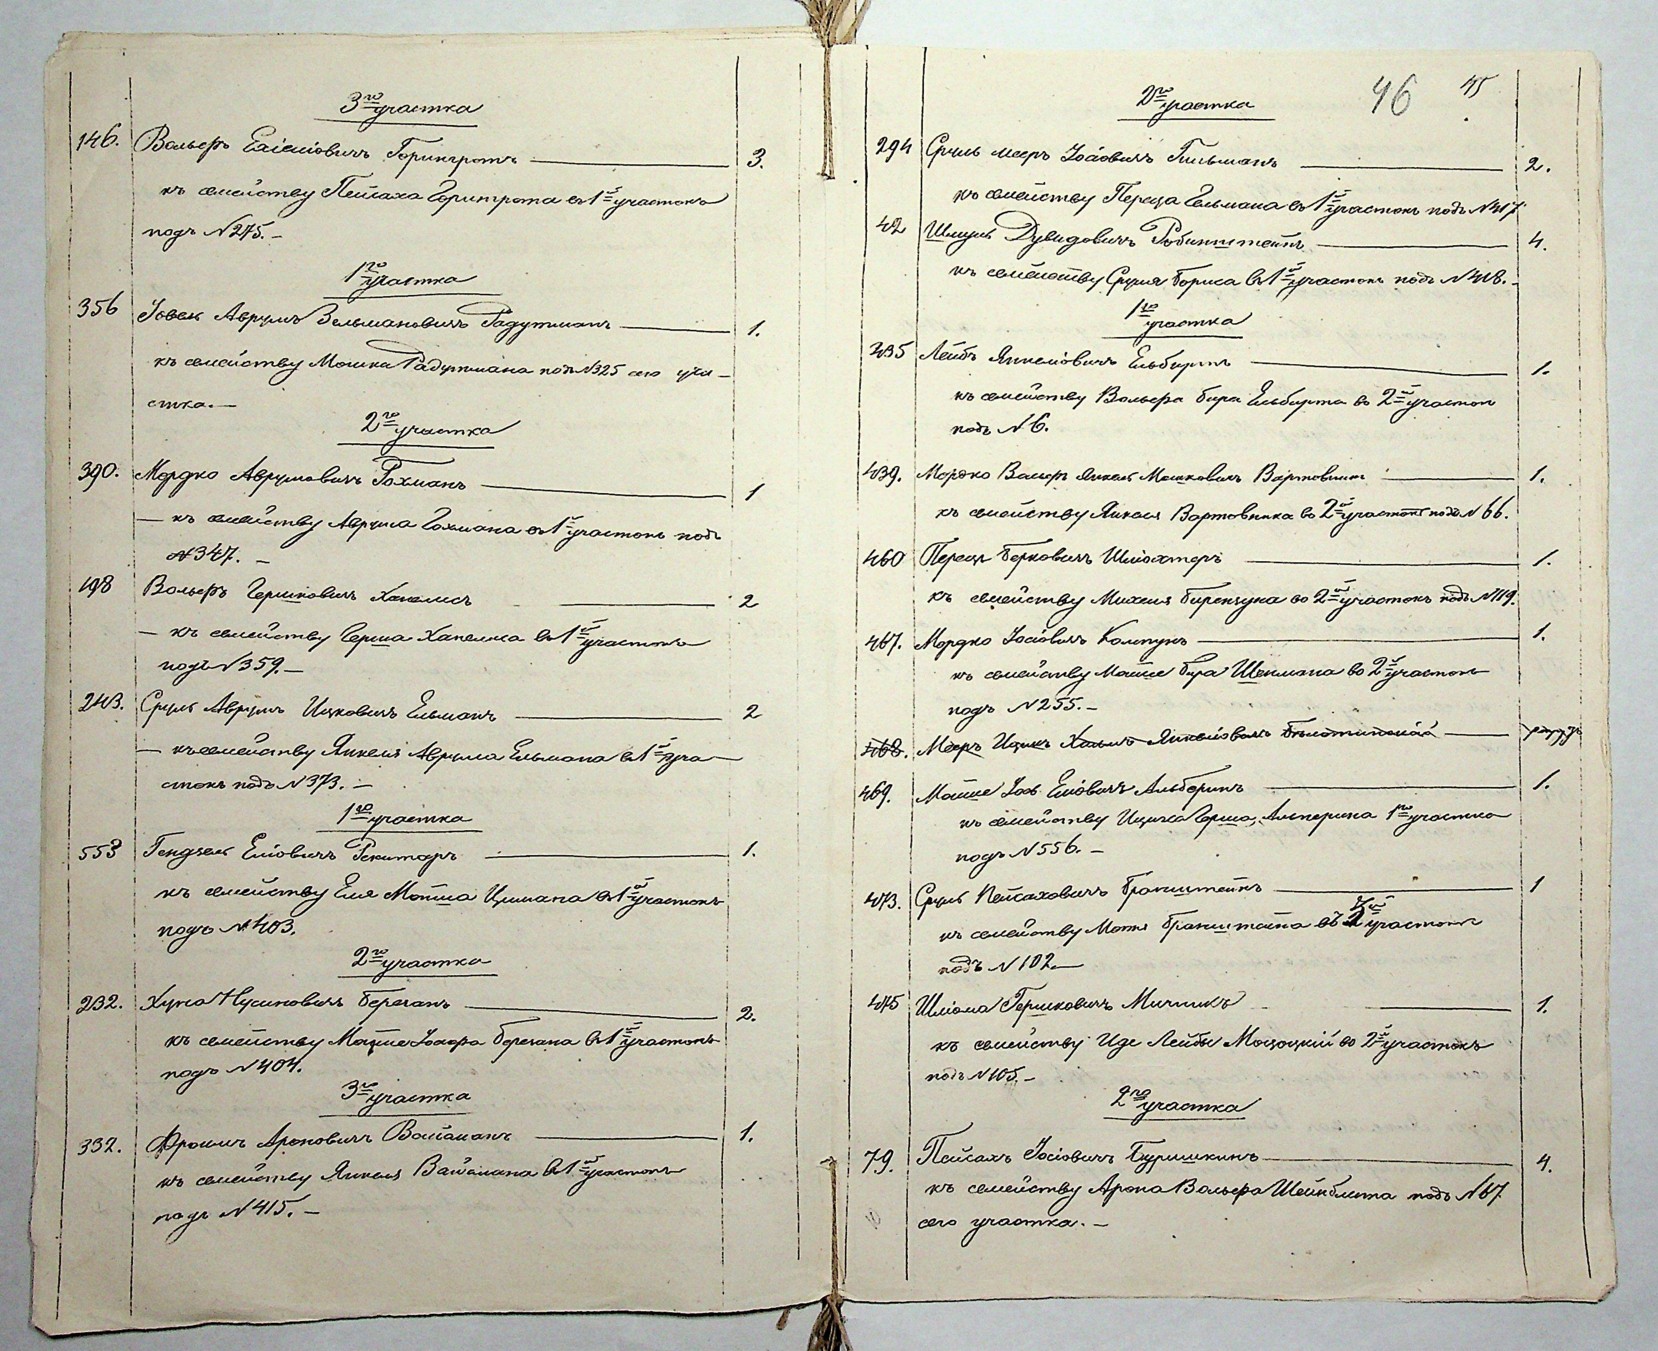 3го участка
146. Вольфъ Еліовичъ Горингротъ 3.
къ семейству Пейсаха Горингрота въ 1й участокъ
подъ №275.
1го участка
356 Іовель Аврумъ Зельмановичъ Радутманъ 1.
къ семейству Мошка Радутмана подъ №325 сего уча-
стка.
2го участка
390. Мордко Аврумовичъ Гохманъ 1
къ семейству Аврума Гохмана въ 1й участокъ подъ
№347.
198 Вольфъ Гершковичъ Хапелисъ 2
къ семейству Герша Хапелиса въ 1й участокъ
подъ №359.
243. Сруль Аврумъ Ицковичъ Ельманъ 2
къ семейству Янкеля Аврума Ельмана въ 1й уча-
стокъ подъ №373.
1го участка
553 Гендзель Еліовичъ 1.
къ семейству Еля Мотша Цимана въ 1й участокъ
подъ №403.
2го участка
232. Хуна Нусиновичъ Береганъ 2.
къ семейству Матіе Іосифа Березана въ 1й участокъ
подъ №404.
3го участка
332. Фроимъ Ароновичъ Вайсманъ 1.
къ семейству Янкеля Вайсмана въ 1й участокъ
подъ №415.
46 45
2го участка
294 Сруль Мееръ Іосіовичъ Гильманъ 2.
къ семейству Переца Гельмана въ 1й участокъ подъ №417
42 Шмуль Дувидовичъ Рабинштейнъ 4.
къ семейству Сруля Бориса въ 1й участокъ подъ №418.
1го участка
435 Лейбъ Янкеліовичъ Ельбиртъ 1.
къ семейству Вольфа Бера Ельбирта во 2й участокъ
подъ №6.
439. Мордко Вольфъ Янкель Мошковичъ Вартовникъ 1.
къ семейству Янкеля Вартовника во 2й участокъ подъ №66.
460 Перецъ Берковичъ Шліахтеръ 1.
къ семейству Михеля Биренчука во 2й участокъ подъ №119.
467. Мордко Іосіовичъ Колтунъ 1.
къ семейству Матіе Бера Шекмана во 2й участокъ
подъ №255.
468. Мееръ Ицикъ Хаимъ Янкеліовичъ
469. Матіе Іосъ Еліовичъ Альберинъ 1.
къ семейству Ицика Герша Альперина 1го участка
подъ №556.
473. Сруль Пейсаховичъ Бронштейнъ 1
къ семейству Мотя Бронштейна въ участокъ
подъ №102.
475 Шліома Гершковичъ Мичникъ 1.
къ семейству Иде Лейбы Мощоцкій во 2й участокъ
подъ №105.
2го участка
79. Пейсахъ Іосіовичъ Буришкинъ 4.
къ семейству Арона Вольфа Шейнблита подъ №67
сего участка.